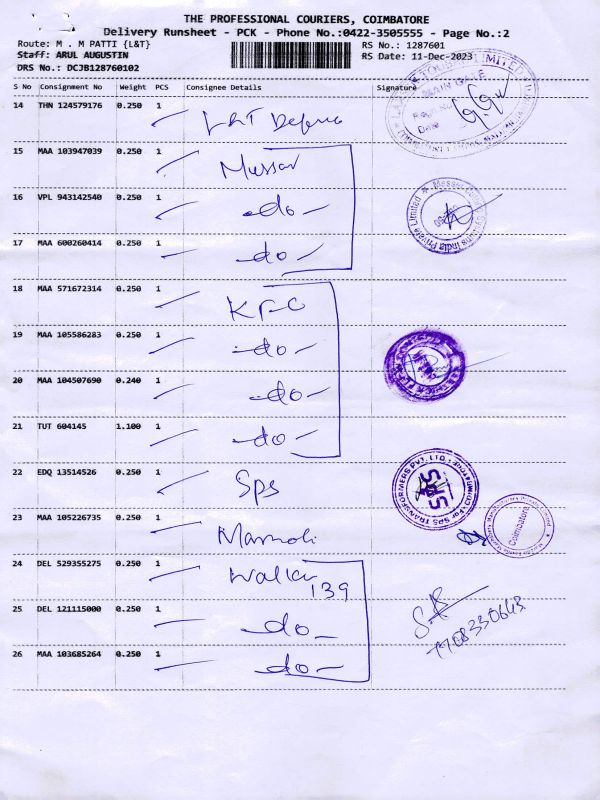 THE PROFESSIONAL COURIERS, COIMBATORE
Delivery Runsheet - PCK - Phone No.:0422-3505555 - Page No.:2
Route: M . M PATTI {L&T} RS No.: 1287601
Staff: ARUL AUGUSTIN RS Date: 11-Dec-2023
DRS No.: DCJB128760102
S No Consignment No Weight PCS Consignee Details Signature
14 THN 124579176 0.250 1 L&T Defence
15 MAA 103947039 0.250 1 Messer
16 VPL 943142540 0.250 1 -do-
17 MAA 600260414 0.250 1 -do-
18 MAA 571672314 0.250 1
19 MAA 105586283 0.250 1 -do-
20 MAA 104507690 0.240 1 -do-
21 TUT 604145 1.100 1 -do-
22 EDQ 13514526 0.250 1 Sps
SPS TRANSFORMERS PVT. LTD.
SPS
23 MAA 105226735 0.250 1
Coimbatore
24 DEL 529355275 0.250 1 Walker
139
25 DEL 121115000 0.250 1 -do-
26 MAA 103685264 0.250 1 -do-